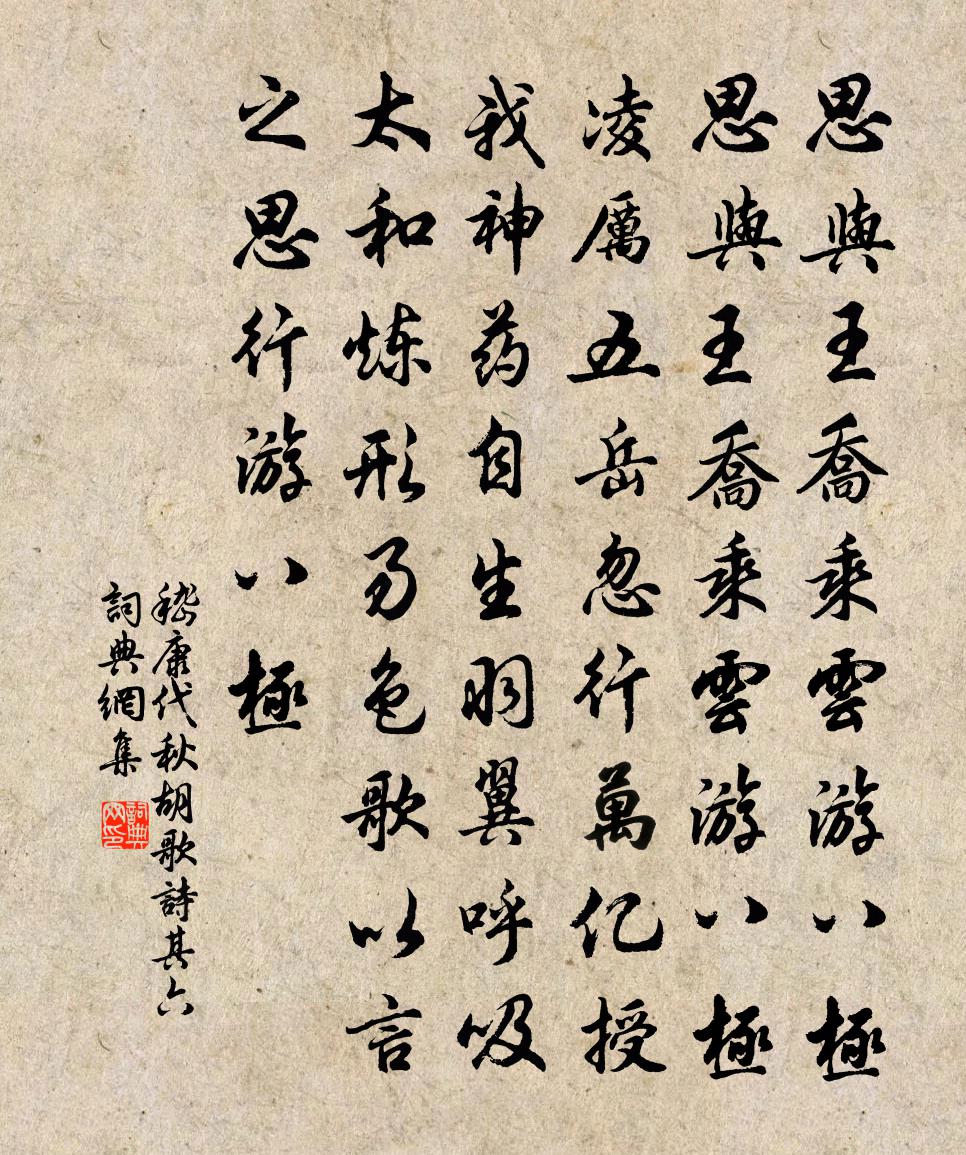 思與王喬乘雲游八極
思與王喬乘雲游八極
凌厲五岳忽行萬亿授
我神药自生羽翼呼吸
太和炼形易色歌以言
之思行游八極
嵇康代秋胡歌詩其六
詞典網集